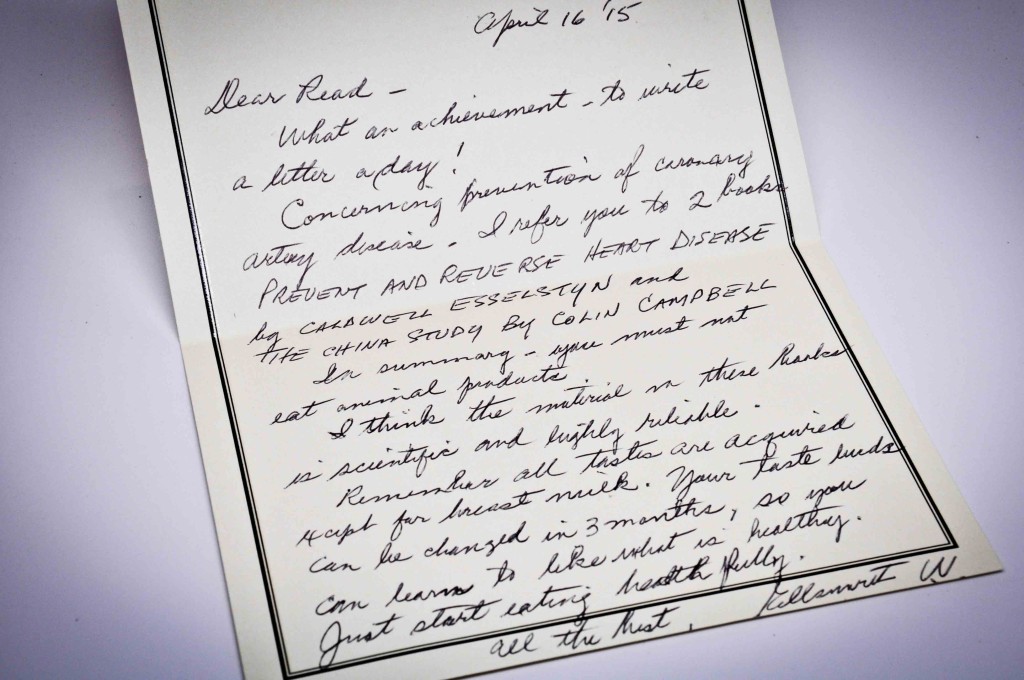 April 16 '15
Dear Read -
What an achievement - to write
a letter a day!
Concerning prevention of coronary
artery disease - I refer you to 2 books
PREVENT AND REVERSE HEART DISEASE
by CALDWELL ESSELSTYN and
THE CHINA STUDY BY COLIN CAMPBELL
In summary - you must not
eat animal products
I think the material in these books
is scientific and highly reliable.
Remember all tastes are acquired
except for breast milk. Your taste buds
can be changed in 3 months, so you
can learn to like what is healthy.
Just start eating healthfully.
all the best,